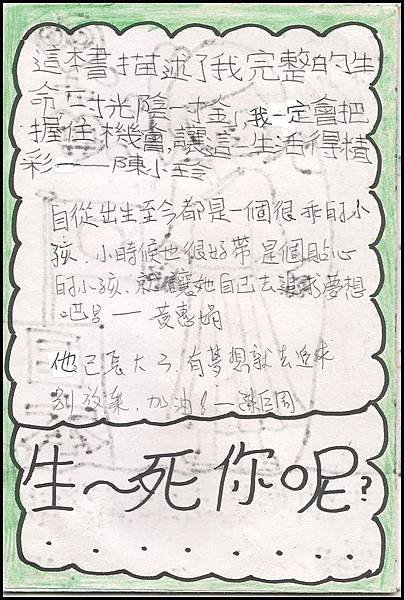 這本書描述了我完整的生
命「一寸光陰一寸金」,我一定會把
握住機會,讓這一生活得精
彩——陳小
自從出生至今都是一個很乖的小
孩.小時候也很好帶.是個貼心
的小孩.就讓她自己去追求夢想
吧!—黃惠娟
他已長大了.有夢想就去追求
別放棄,加油!—
生~死你呢?
. . . . . . . . .